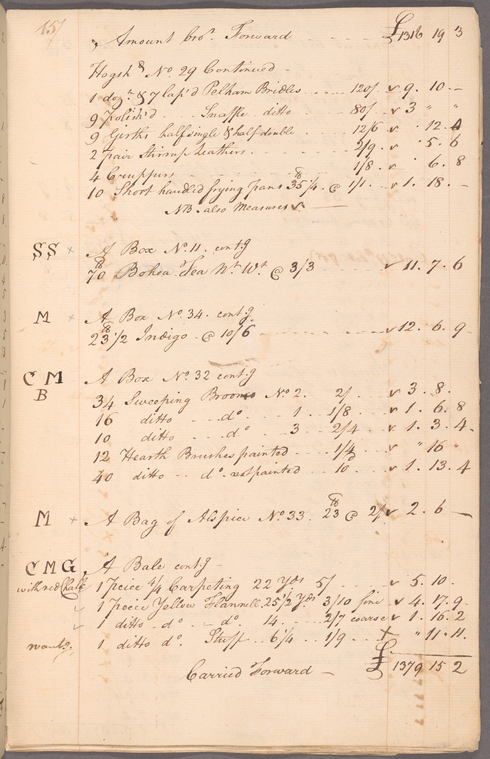 45
Amount bro.t Forward £1316 19 3
Hogsh.d No 29 Continued
1 doz.n & 7 lap'd Pelham Bridles 120/ 9. 10. —
9 Polish'd Snaffle ditto 80/ 3 " "
9 Girths half single & half double 12/6 " 12. 4
2 pair Stirrup Leathers 2/9 . 5. 6
4 Cruppers 1/8 . 6. 8
10 Short handled frying pans 35 1/4 @ 1/1 1. 18. —
NB also Measures
SS A Box No. 11. contg
70 Bohea Tea Nt Wt. @ 3/3 11. 7. 6
M A Box No. 34. contg
23 1/2 Indigo @ 10/6 12. 6. 9
CM A Box No. 32 contg
B
34 Sweeping Brooms No 2. 2/ 3. 8.
16 ditto do. 1 1/8 1. 6. 8
10 ditto do. 3 2/4 1. 3. 4
12 Hearth Brushes painted 1/4 " 16 "
40 ditto do. painted 10 1. 13. 4
M A Bag of Alspice No. 33. 23 @ 2/ 2. 6 —
CMG A Bale contg
with red Chalk 1 Peice 4/4 Carpeting 22 Yds 5/ 5. 10.
1 Peice Yellow Flannell 25 1/2 Yds 3/10 fine 4. 17. 9
1 ditto do. 14. 2/7 coarse 1. 16. 2
wants. 1 ditto do. Stuff 6 1/4 1/9 " 11. 11.
Carried Forward £ 1379 15 2